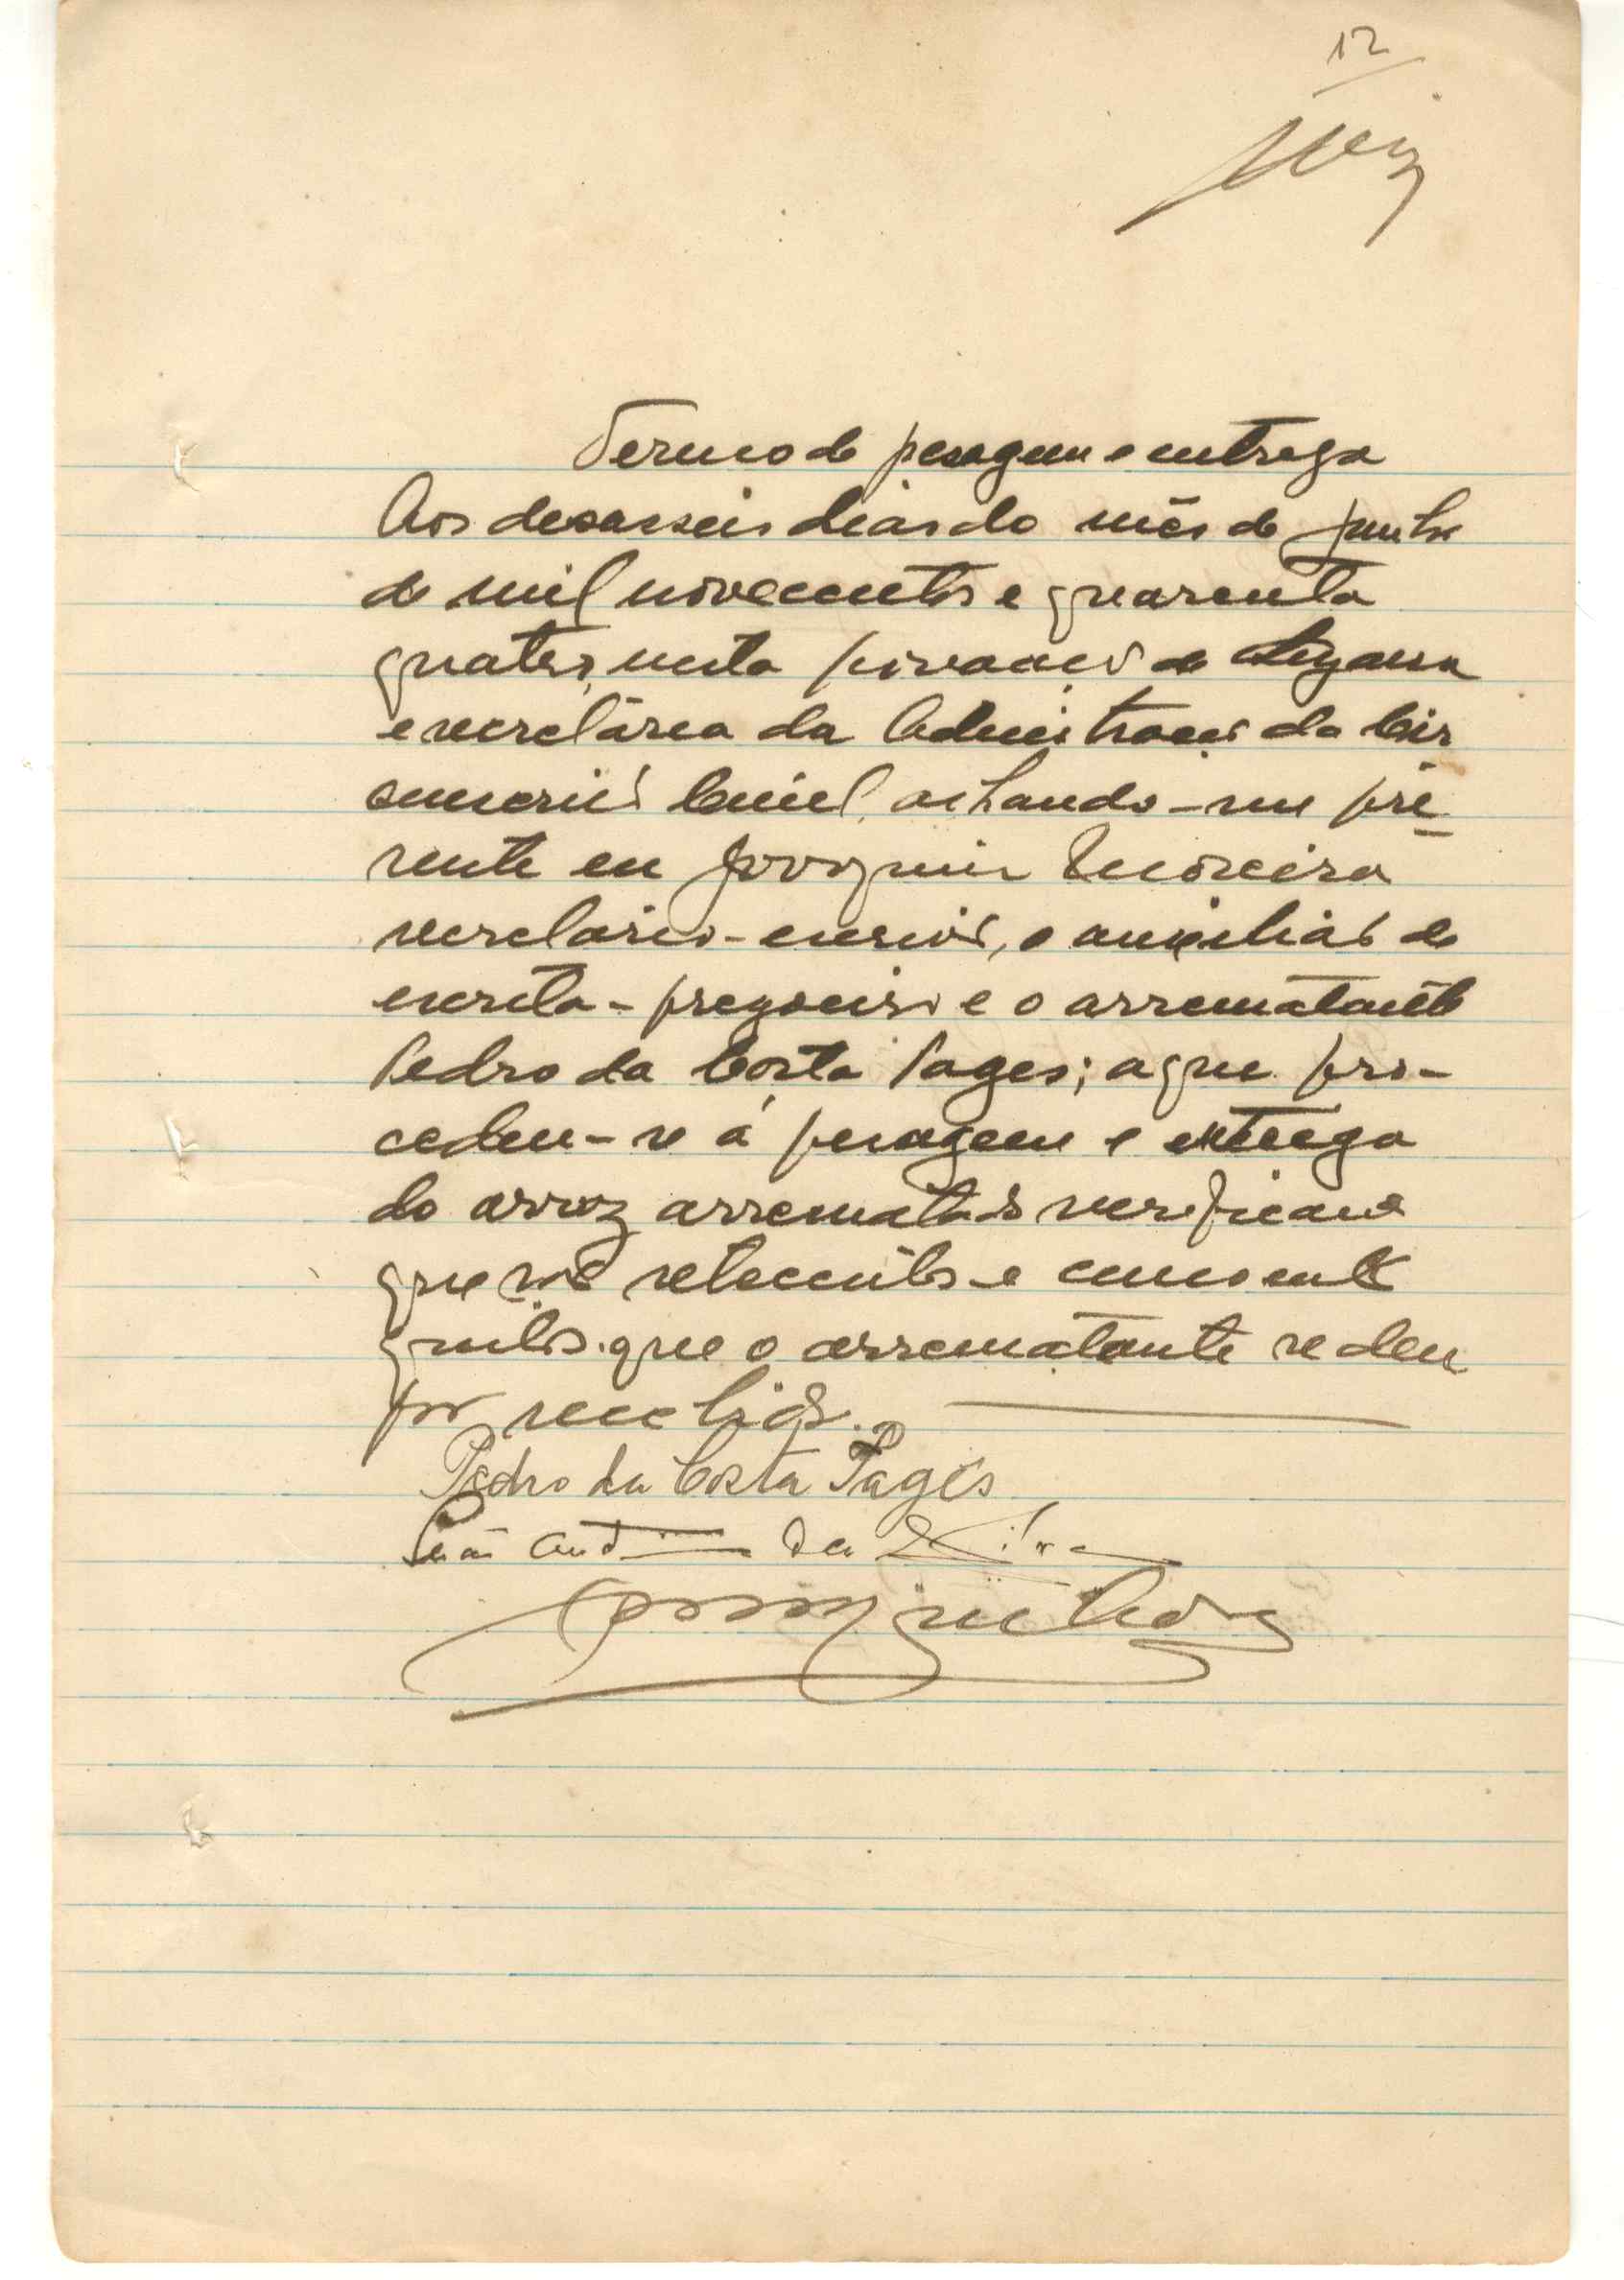 12
Termo de pesagem e entrega
Aos desasseis dias do mês de Junho
de mil novecentos e quarenta
quatro, nesta povoação de
e secretária da Administração da Cir
cunscrição Civil, achando-me pre
sente eu Joaquim Moreira
secretário-escrivão, o auxiliar de
escrita-pregoeiro e o arrematante
Pedro da Costa Pages; a que pro-
cedeu-se á pesagem e entrega
do arroz arrematado verificando
que são setecentos e cincoenta
quilos que o arrematante se deu
por recebido.
Pedro da Costa Pagés
da Silva